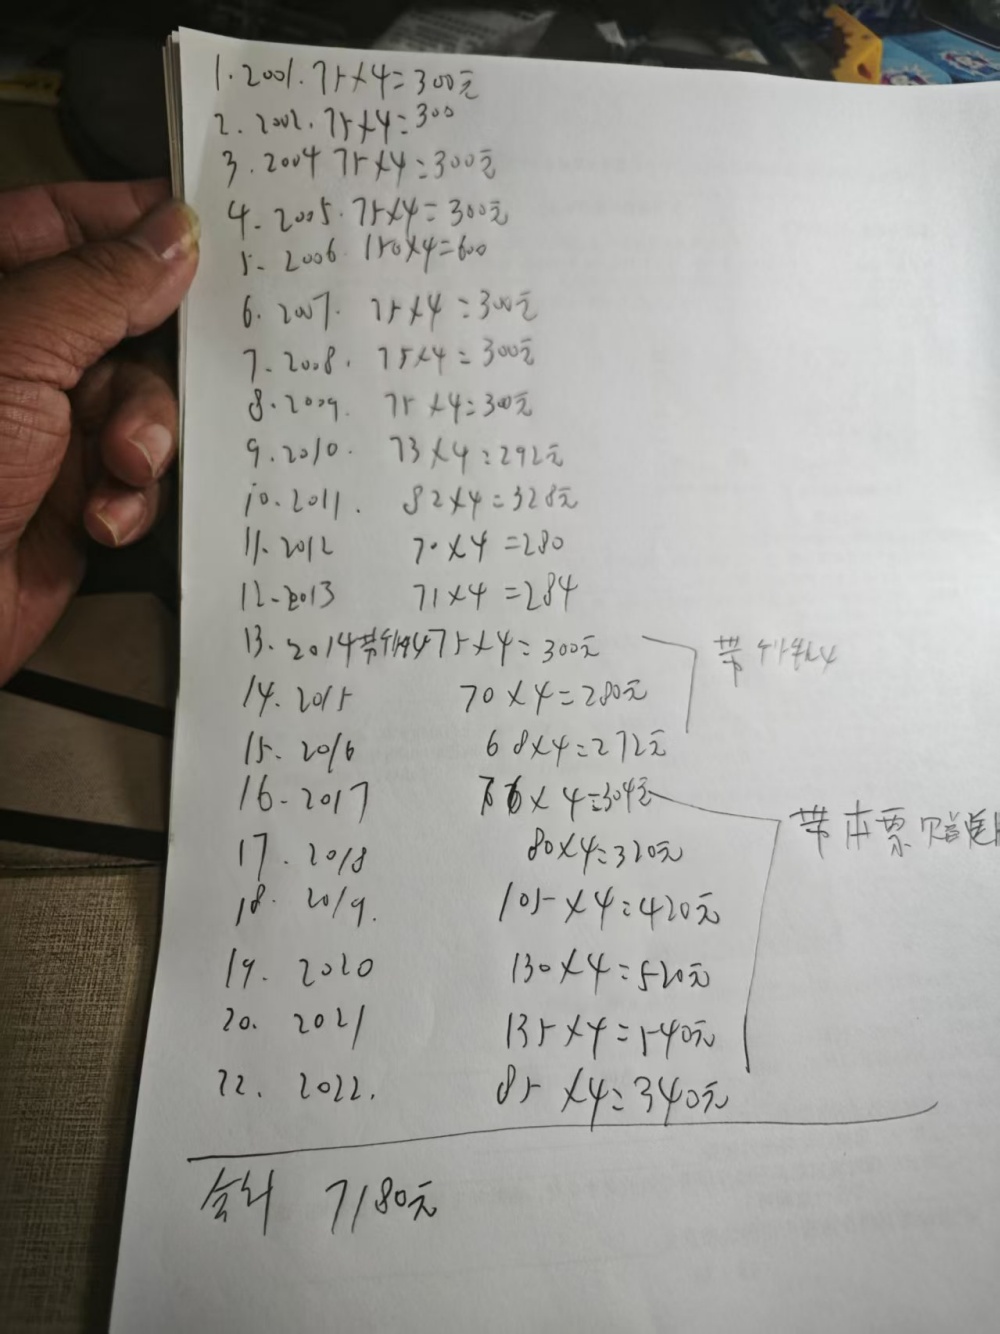 1. 2001. 75×4=300元
2. 2002. 75×4=300
3. 2004 75×4=300元
4. 2005. 75×4=300元
5. 2006 150×4=600
6. 2007. 75×4=300元
7. 2008. 75×4=300元
8. 2009. 75×4=300元
9. 2010. 73×4=292元
10. 2011. 82×4=328元
11. 2012 70×4=280
12. 2013 71×4=284
13. 2014带 75×4=300元 带
14. 2015 70×4=280元
15. 2016 68×4=272元
16. 2017 76×4=304元 带本票赠
17. 2018 80×4=320元
18. 2019. 105×4=420元
19. 2020 130×4=520元
20. 2021 135×4=540元
22. 2022. 85×4=340元
合计 7180元